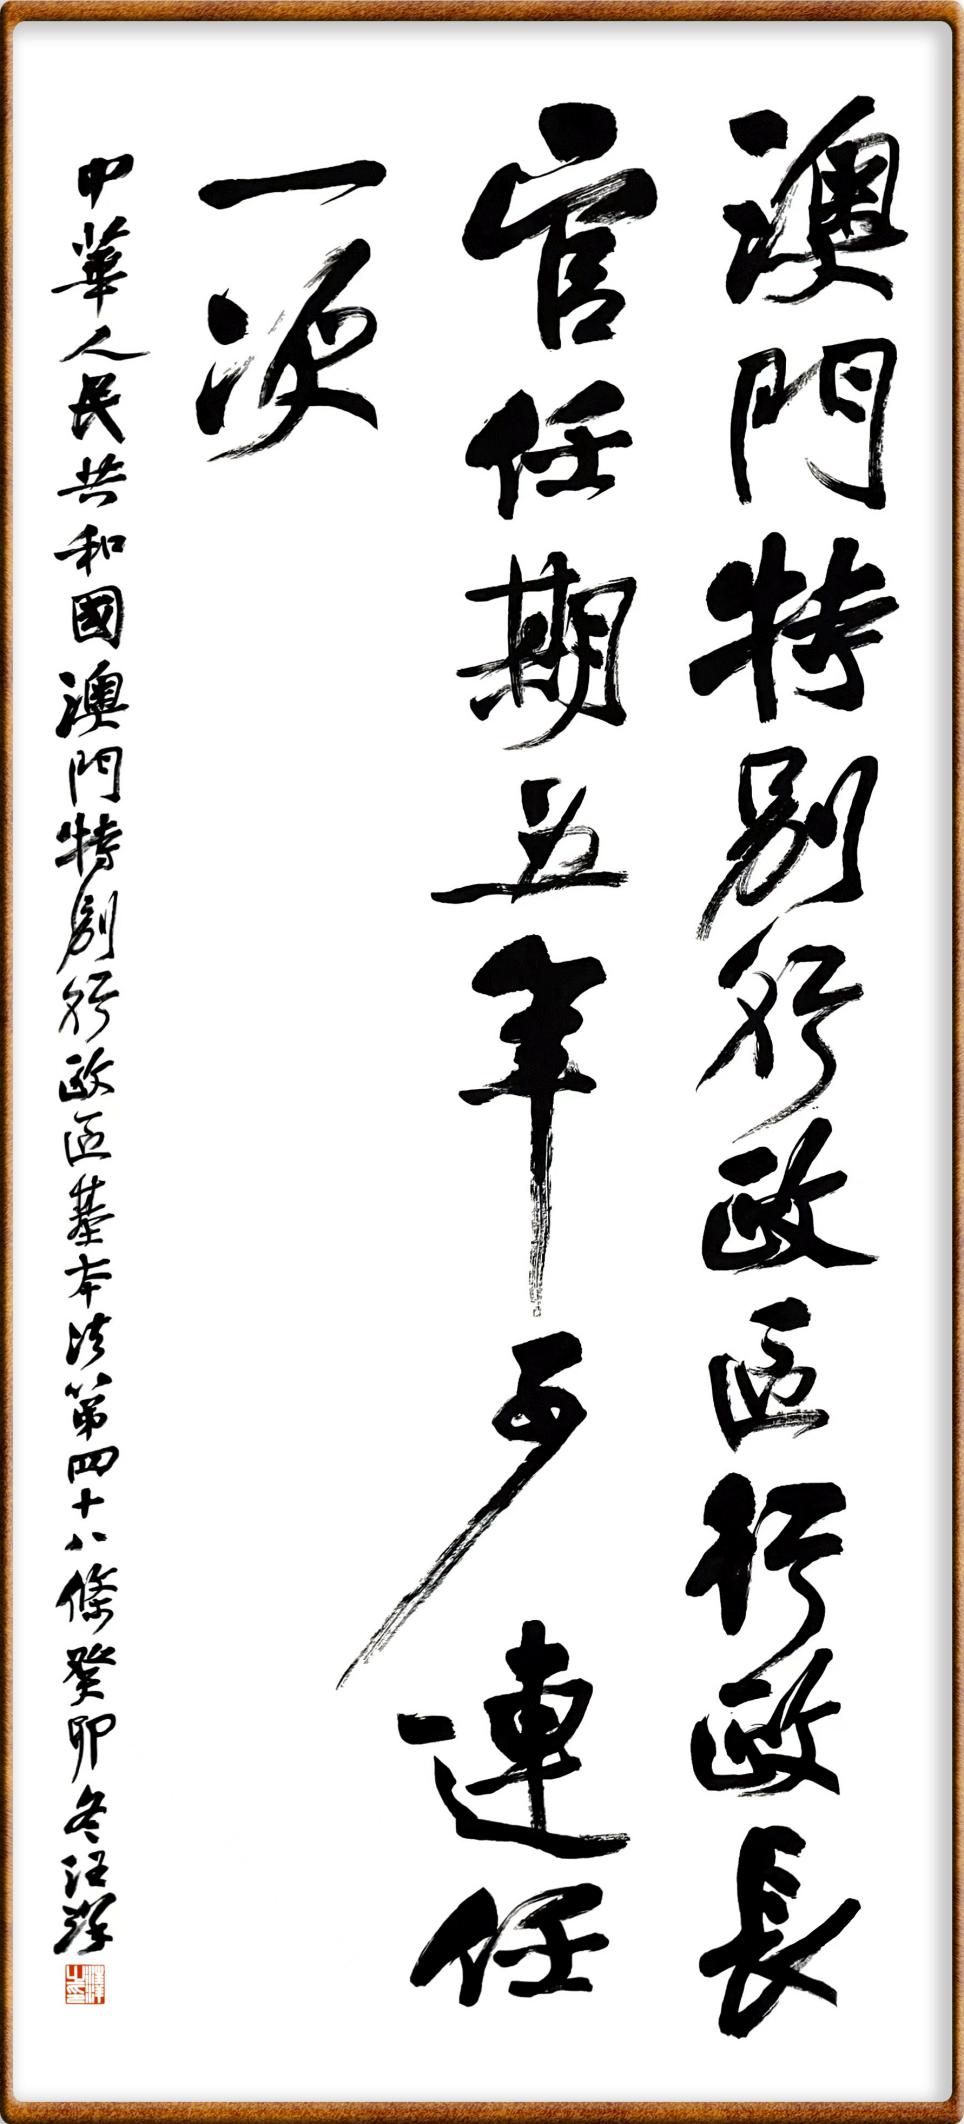 澳門特別行政區行政長
官任期五年可連任
一次
中華人民共和國澳門特別行政區基本法第四十八條癸卯冬汪澤